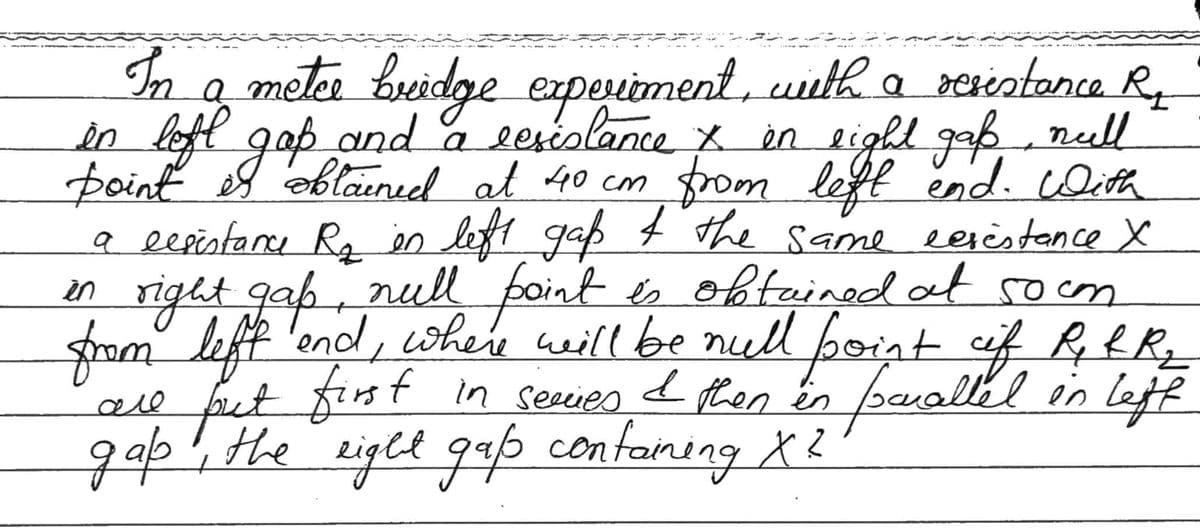 In a meter bridge experiment, with a resistance R₁
in left gap and a resistance X in right gap, null
point is obtained at 40 cm from left end. With
a resistance R₂ in left gap & the same resistance X
in right gap, null point is obtained at 50 cm
from left end, where will be null point if R₁ & R₂
are put first in series & then in parallel in left
gap, the right gap containing X?